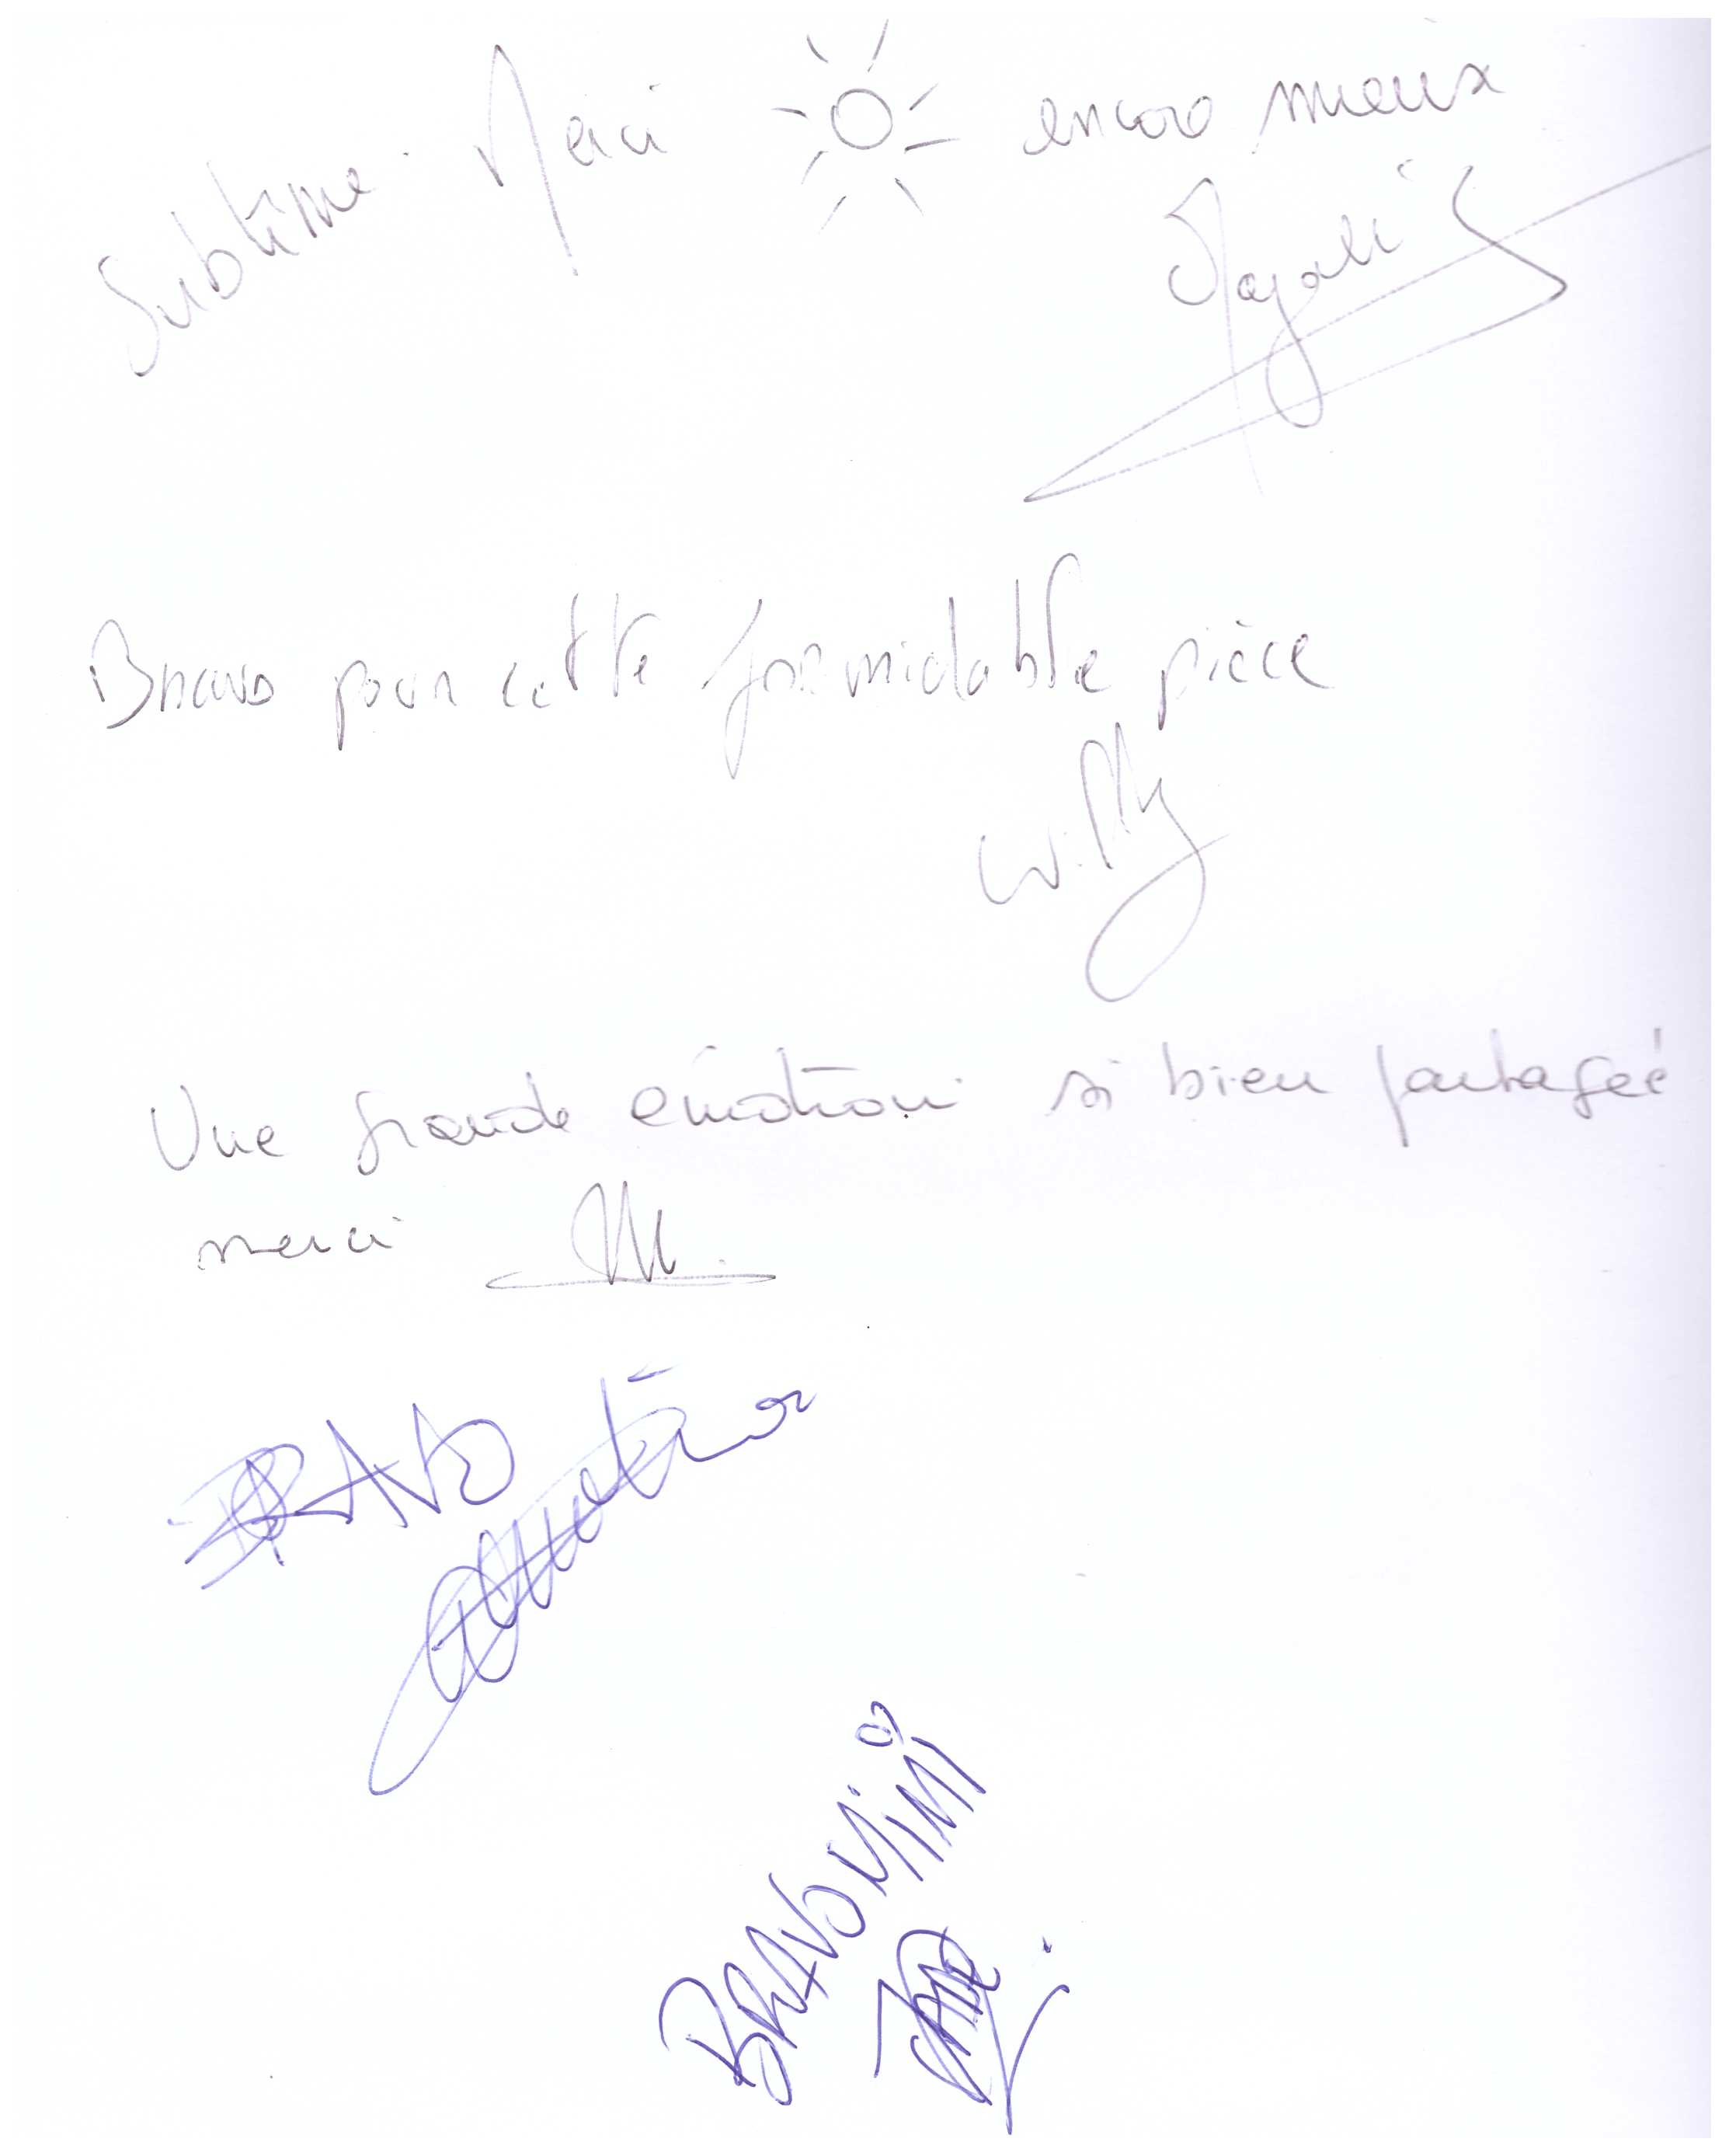 Sublime. Merci encore mieux
Magali
Bravo pour cette formidable pièce
Willy
Une grande émotion si bien partagée
merci
BRAVO
BRAVO MIMI